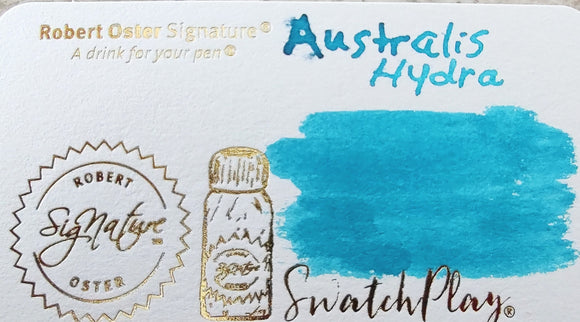 Robert Oster Signature®
A drink for your pen™
Australis
Hydra
ROBERT
SigNature™
OSTER
SwatchPlay®